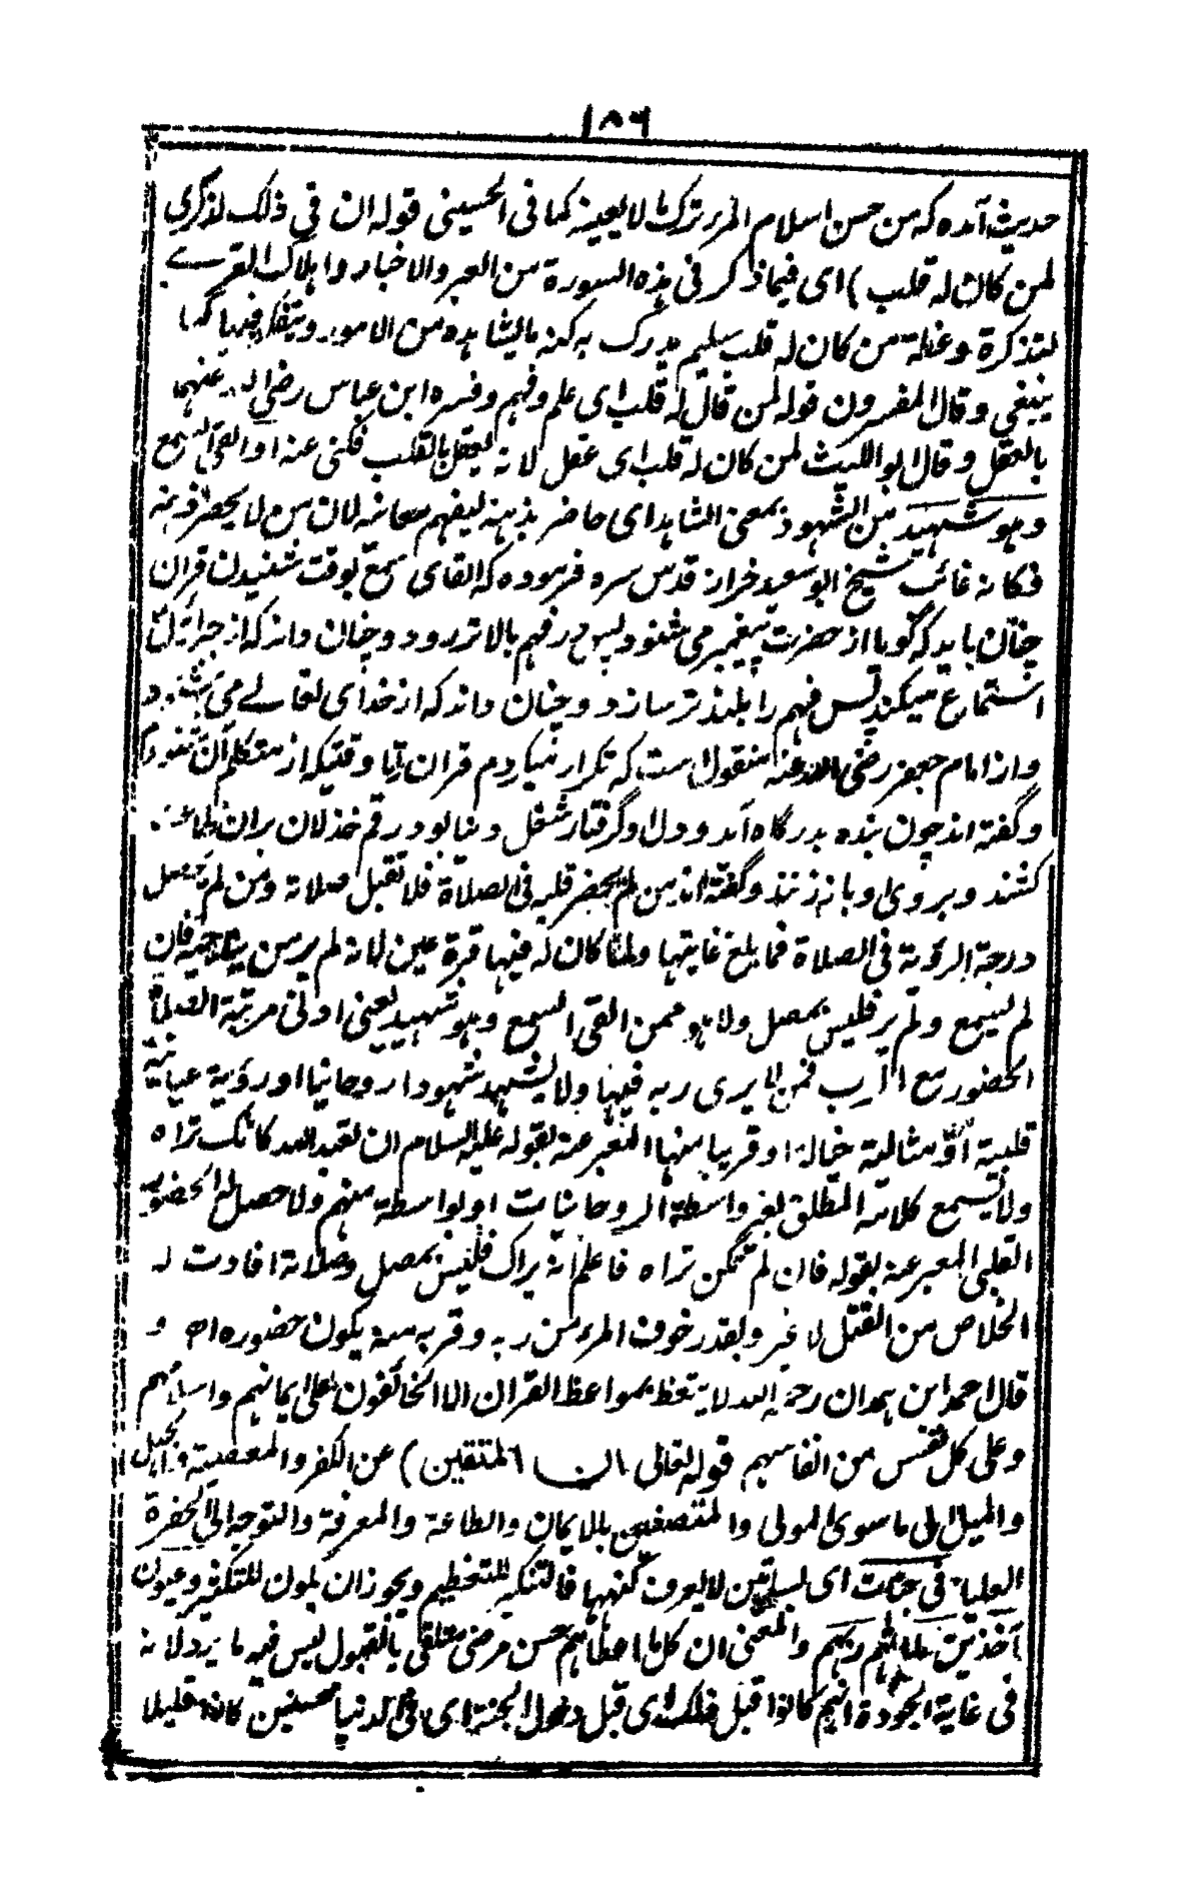 ١٥٦
حدیث آمده که من حسن اسلام المرء ترک ما لا یعینه کما فی الحسینی قوله ان فی ذلک لذکری
لمن کان له قلب) ای فیما ذکر فی هذه السورة من العبر والاخبار واهلاک القرے
لتذکرة وعظة من کان له قلب سلیم یدرک به کنه ما یشاهده من الامور ویتفکر فیها کما
ینبغی وقال المفسرون قوله لمن قال له قلب ای علم وفهم وفسره ابن عباس رضی الله عنهما
بالعقل وقال ابو اللیث لمن کان له قلب ای عقل لانه یعقل بالقلب فکنی عنه او القی السمع
وهو شهید من الشهود بمعنی الشاهد ای حاضر بذهنه لیفهم معانیه لان من لا یحضر ذهنه
فکانه غائب شیخ ابو سعید خراز قدس سره فرموده که القای سمع بوقت شنیدن قران
چنان باید که گویا از حضرت پیغمبر می شنود پس در فهم بالاتر رود و چنان داند که از جبرائیل
استماع میکند پس فهم را بلند تر سازد و چنان داند که از خدای تعالے می شنود
و از امام جعفر رضی الله عنه منقول ست که تکرار میکردم قران تا وقتیکه از متکلم آن شنودم
و گفته اند چون بنده بدرگاه آید و دل او گرفتار شغل دنیا بود رقم خذلان بران طاعت
کشند و بروی او باز زنند و گفته اند من لم یحضر قلبه فی الصلاة فلا تقبل صلاته ومن لم یحصل
درجة الرؤیة فی الصلاة فما بلغ غایتها ولا کان له فیها قرة عین لانه لم یر من یناجیه فان
لم یسمع ولم یر فلیس بمصل ولا هو ممن القی السمع وهو شهید یعنی ادنی مرتبة الصلاة
الحضور مع الرب فمن لا یری ربه فیها ولا یشهد شهودا روحانیا او رؤیة عیانیة
قلبیة او مثالیة خیالة او قریبا منها المعبر عنه بقوله علیه السلام ان تعبد الله کانک تراه
ولا یسمع کلامه المطلق بغیر واسطة الروحانیات او بواسطة منهم ولا حصل له الحضور
القلبی المعبر عنه بقوله فان لم تکن تراه فاعلم انه یراک فلیس بمصل وصلاته افادت له
الخلاص من القتل لا غیر وبقدر خوف المرء من ربه وقربه منه یکون حضوره اه و
قال احمد ابن حمدان رحمه الله لا یتعظ بمواعظ القران الا الخائفون علی ایمانهم واسلامهم
وعلی کل نفس من انفاسهم قوله تعالی ان المتقین) عن الکفر والمعصیة والجهل
والمیل الی ما سوی المولی والمتصفین بالایمان والطاعة والمعرفة والتوجه الی الحضرة
العلیا فی جنات ای بساتین لا یعرف کنهها فالتنکیر للتعظیم ویجوز ان یکون للتکثیر وعیون
آخذین ما اتهم ربهم والمعنی ان کل ما اعطاهم حسن مرضی متلقی بالقبول لیس فیه ما یرد لانه
فی غایة الجودة انهم کانوا قبل ذلک ای قبل دخول الجنة ای فی الدنیا محسنین کانوا قلیلا